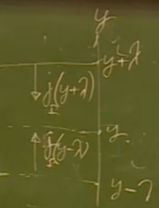 y
y+λ
j(y+λ)
y
j(y-λ)
y-λ